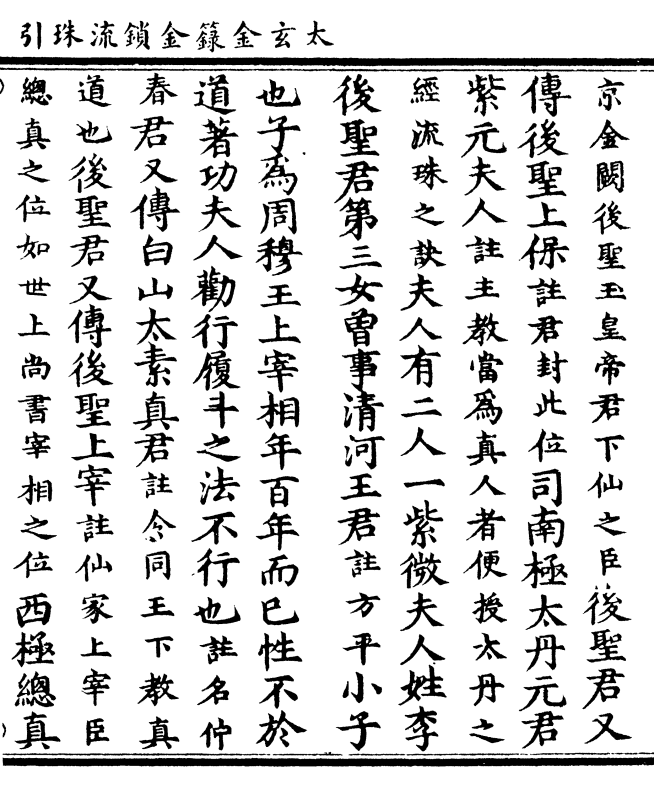 太玄金籙金鎖流珠引
京金闕後聖玉皇帝君下仙之臣後聖君又
傳後聖上保註君封此位司南極太丹元君
紫元夫人註主教當為真人者便授太丹之
經流珠之訣夫人有二人一紫微夫人姓李
後聖君第三女曾事清河王君註方平小子
也子為周穆王上宰相年百年而已性不於
道著功夫人勸行履斗之法不行也註名仲
春君又傳白山太素真君註今同王下教真
道也後聖君又傳後聖上宰註仙家上宰臣
總真之位如世上尚書宰相之位西極總真